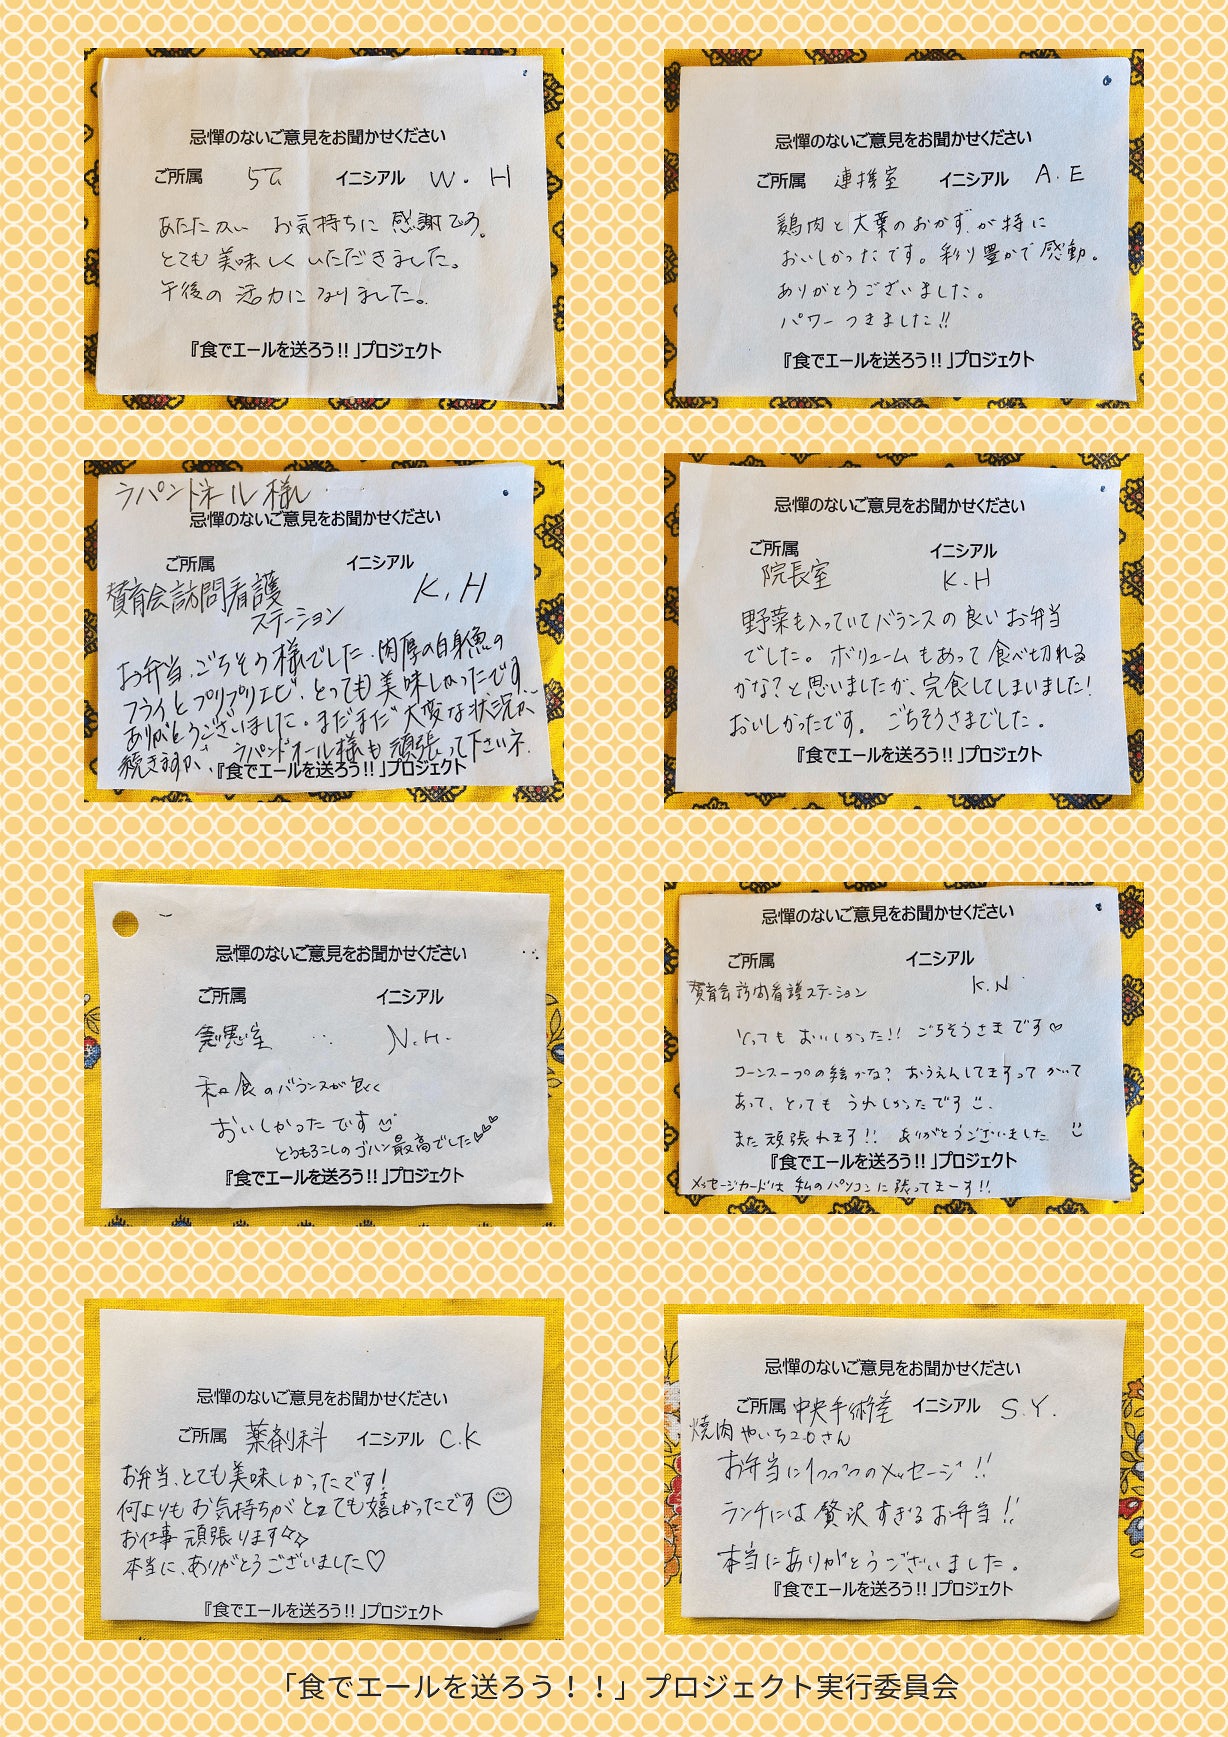 忌憚のないご意見をお聞かせください
ご所属 5 イニシアル W.H
あたたかい お気持ちに 感謝
とても美味しくいただきました。
午後の 活力に なりました。
『食でエールを送ろう!!」プロジェクト
忌憚のないご意見をお聞かせください
ご所属 連携室 イニシアル A.E
鶏肉と大葉のおかずが特に
おいしかったです。彩り豊かで感動。
ありがとうございました。
パワーつきました!!
『食でエールを送ろう!!」プロジェクト
ラパンドオール様
忌憚のないご意見をお聞かせください
ご所属 イニシアル
賛育会訪問看護 K.H
ステーション
お弁当、ごちそう様でした。肉厚の白身魚の
フライとプリプリエビ、とっても美味しかったです。
ありがとうございました。まだまだ大変な状況が、
続きますが、ラパンドオール様も頑張って下さいネ.
『食でエールを送ろう!!」プロジェクト
忌憚のないご意見をお聞かせください
ご所属 イニシアル
院長室 K.H
野菜も入っていてバランスの良いお弁当
でした。ボリュームもあって食べ切れる
かな?と思いましたが、完食してしまいました!
おいしかったです。ごちそうさまでした。
『食でエールを送ろう!!」プロジェクト
忌憚のないご意見をお聞かせください
ご所属 イニシアル
N.H.
和食のバランスが良く
おいしかったです
とうもろこしのゴハン最高でした♡♡♡
『食でエールを送ろう!!」プロジェクト
忌憚のないご意見をお聞かせください
ご所属 イニシアル
賛育会訪問看護ステーション K.N
とっても おいしかった!! ごちそうさまです♡
コーンスープの絵かな? おうえんしてますって かいて
あって、とっても うれしかったです
また頑張れます!! ありがとうございました
『食でエールを送ろう!!」プロジェクト
メッセージカードは 私のパソコンに 張ってまーす!!
忌憚のないご意見をお聞かせください
ご所属 薬剤科 イニシアル C.K
お弁当、とても美味しかったです!
何よりもお気持ちがとっても嬉しかったです
お仕事 頑張ります☆☆
本当に、ありがとうございました♡
『食でエールを送ろう!!」プロジェクト
忌憚のないご意見をお聞かせください
ご所属 中央手術室 イニシアル S.Y.
焼肉 やいち2.0さん
お弁当に1つずつのメッセージ!!
ランチには贅沢すぎるお弁当!!
本当にありがとうございました。
『食でエールを送ろう!!」プロジェクト
「食でエールを送ろう!!」プロジェクト実行委員会